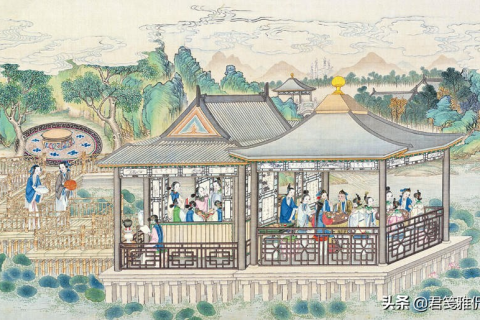 头条 @君笺雅侃